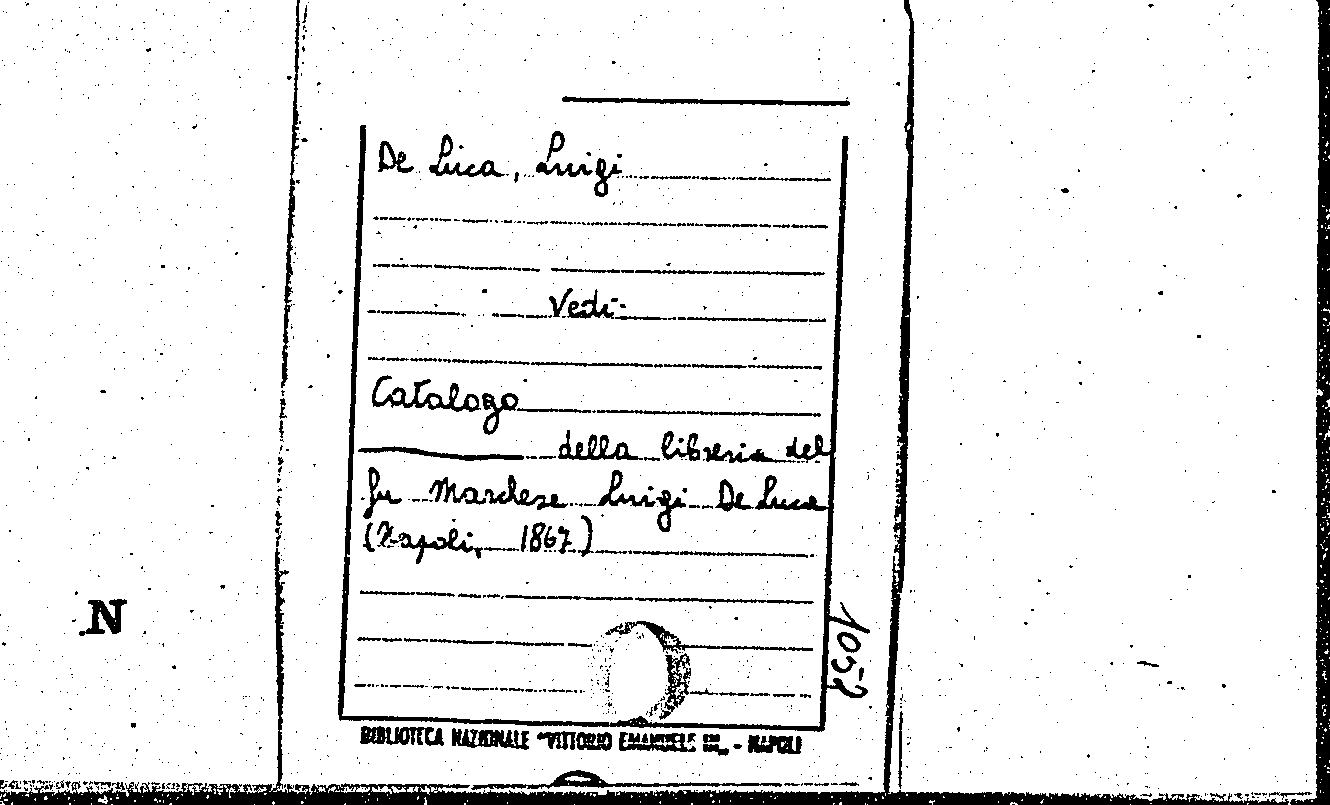 De Luca, Luigi
Vedi
Catalogo
della libreria del
fu Marchese Luigi De Luca
(Napoli, 1867)
N
1052
BIBLIOTECA NAZIONALE "VITTORIO EMANUELE III" - NAPOLI